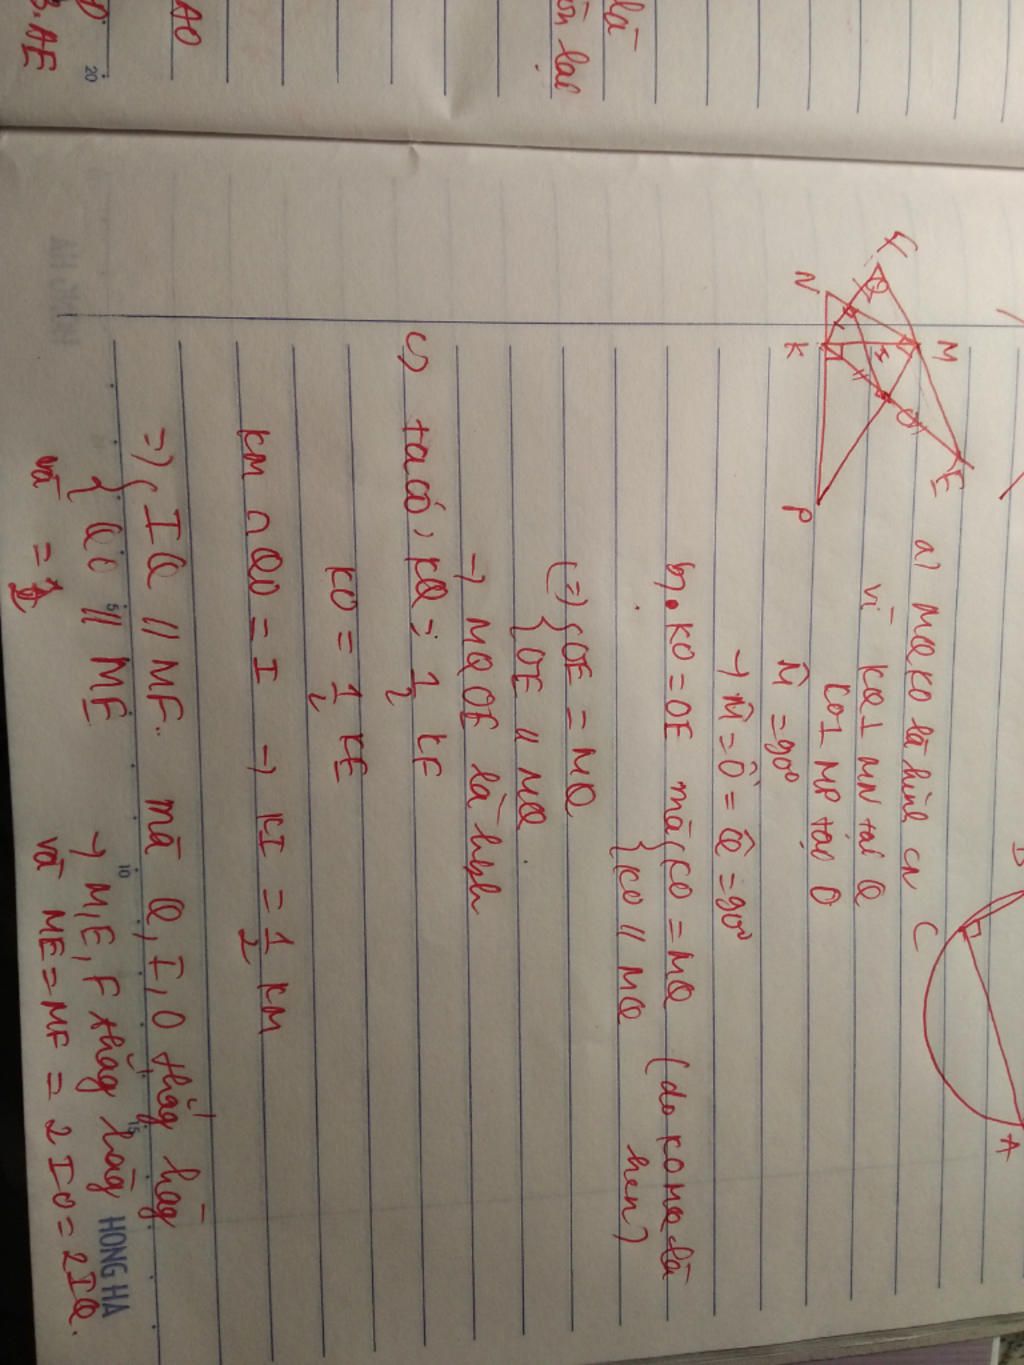 là
còn lại
AO
B. AE
20
B
C
A
F
Q
N
M
K
I
O
E
P
a) MQKO là hình CN
vì KQ⊥ MN tại Q
KO⊥ MP tại O
M̂ = 90°
→ M̂ = Ô = Q̂ = 90°
b) • KO = OE mà { KO = MQ (do KOMQ là
KO // MQ hcn)
(=) { OE = MQ
OE // MQ
→ MQOE là hbh
c) ta có, KQ = 1/2 KF
KO = 1/2 KE
KM ∩ QO = I → KI = 1/2 KM
=) { IQ // MF. mà Q, I, O thẳng hàng
QO // ME → M, E, F thẳng hàng
và = 1/2 và ME = MF = 2 IO = 2IQ.
5
10
15
HONG HA